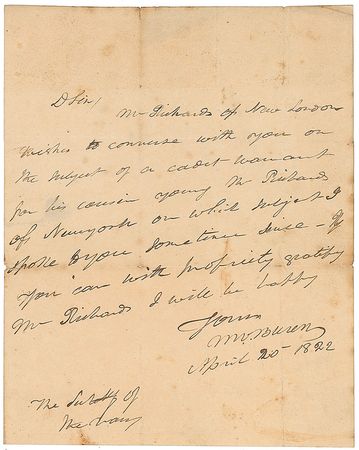 D Sir, Mr Richards of New London
wishes to converse with you on
the subject of a cadet warrant
for his cousin young Mr Richards
of Newyork on which subject I
spoke to you sometime since - If
you can with propriety gratify
Mr Richards I will be happy
Yours
M V Buren
April 20 - 1822
The Secty of
the Navy